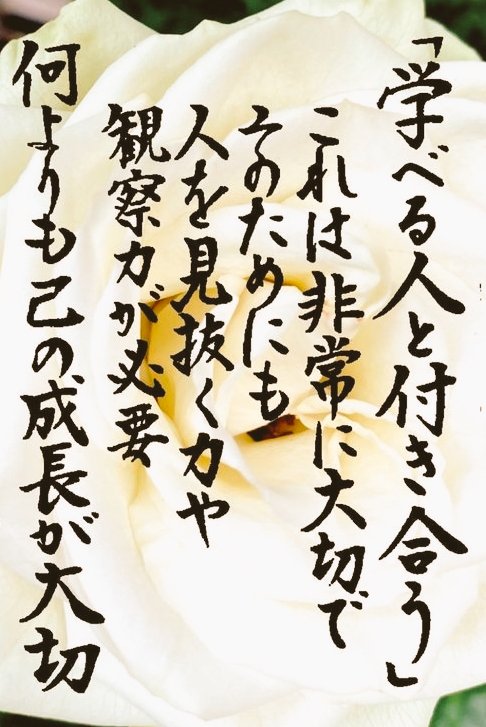 「学べる人と付き合う」
これは非常に大切で
そのためにも
人を見抜く力や
観察力が必要
何よりも己の成長が大切